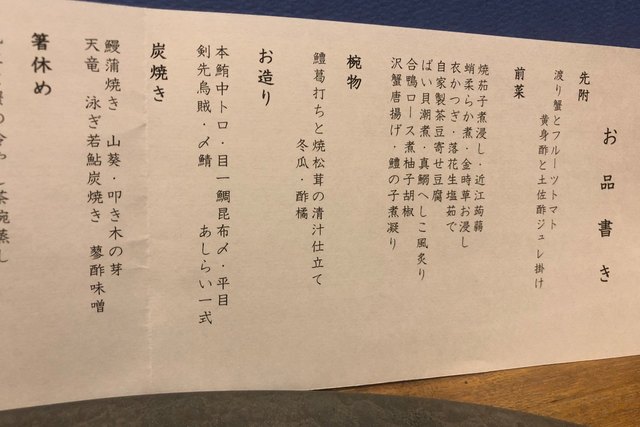 お品書き
先附
渡り蟹とフルーツトマト
黄身酢と土佐酢ジュレ掛け
前菜
焼茄子煮浸し・近江蒟蒻
蛸柔らか煮・金時草お浸し
衣かつぎ・落花生塩茹で
自家製茶豆寄せ豆腐
ばい貝潮煮・真鰯へしこ風炙り
合鴨ロース煮柚子胡椒
沢蟹唐揚げ・鱧の子煮凝り
椀物
鱧葛打ちと焼松茸の清汁仕立て
冬瓜・酢橘
お造り
本鮪中トロ・目一鯛昆布〆・平目
剣先烏賊・〆鯖　あしらい一式
炭焼き
鰻蒲焼き　山葵・叩き木の芽
天竜　泳ぎ若鮎炭焼き　蓼酢味噌
箸休め
茶碗蒸し